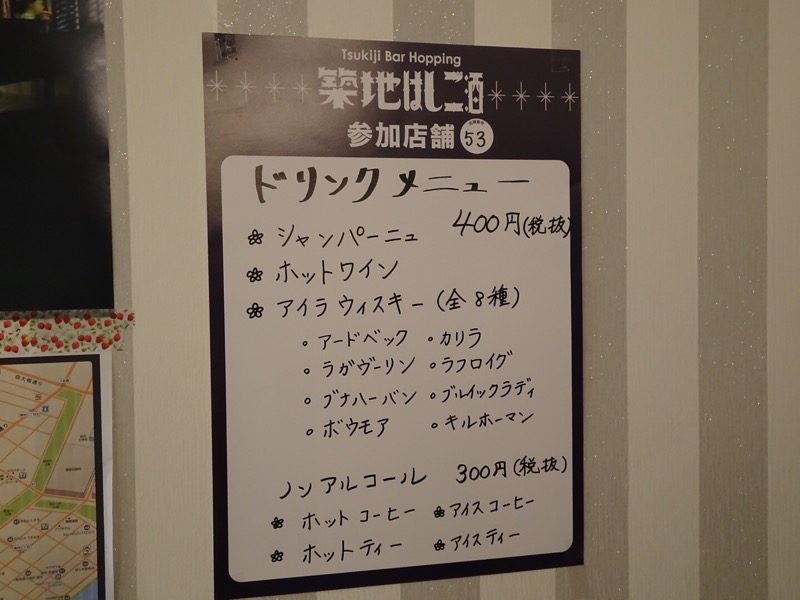 Tsukiji Bar Hopping
築地はしご酒
参加店舗 53
ドリンクメニュー
400円(税抜)
シャンパーニュ
ホットワイン
アイラウィスキー(全8種)
・アードベック ・カリラ
・ラガヴーリン ・ラフロイグ
・ブナハーバン ・ブルイックラディ
・ボウモア ・キルホーマン
ノンアルコール 300円(税抜)
ホットコーヒー アイスコーヒー
ホットティー アイスティー